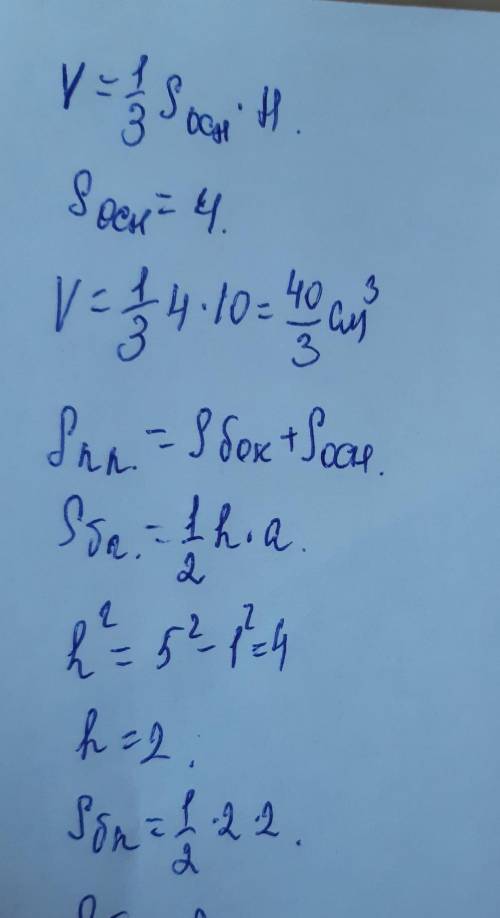 V = 1/3 Sосн · H.
Sосн = 4.
V = 1/3 4 · 10 = 40/3 см³
Sп.п. = Sбок + Sосн.
Sбп. = 1/2 h · a.
h² = 5² - 1² = 4
h = 2.
Sбп = 1/2 · 2 · 2.